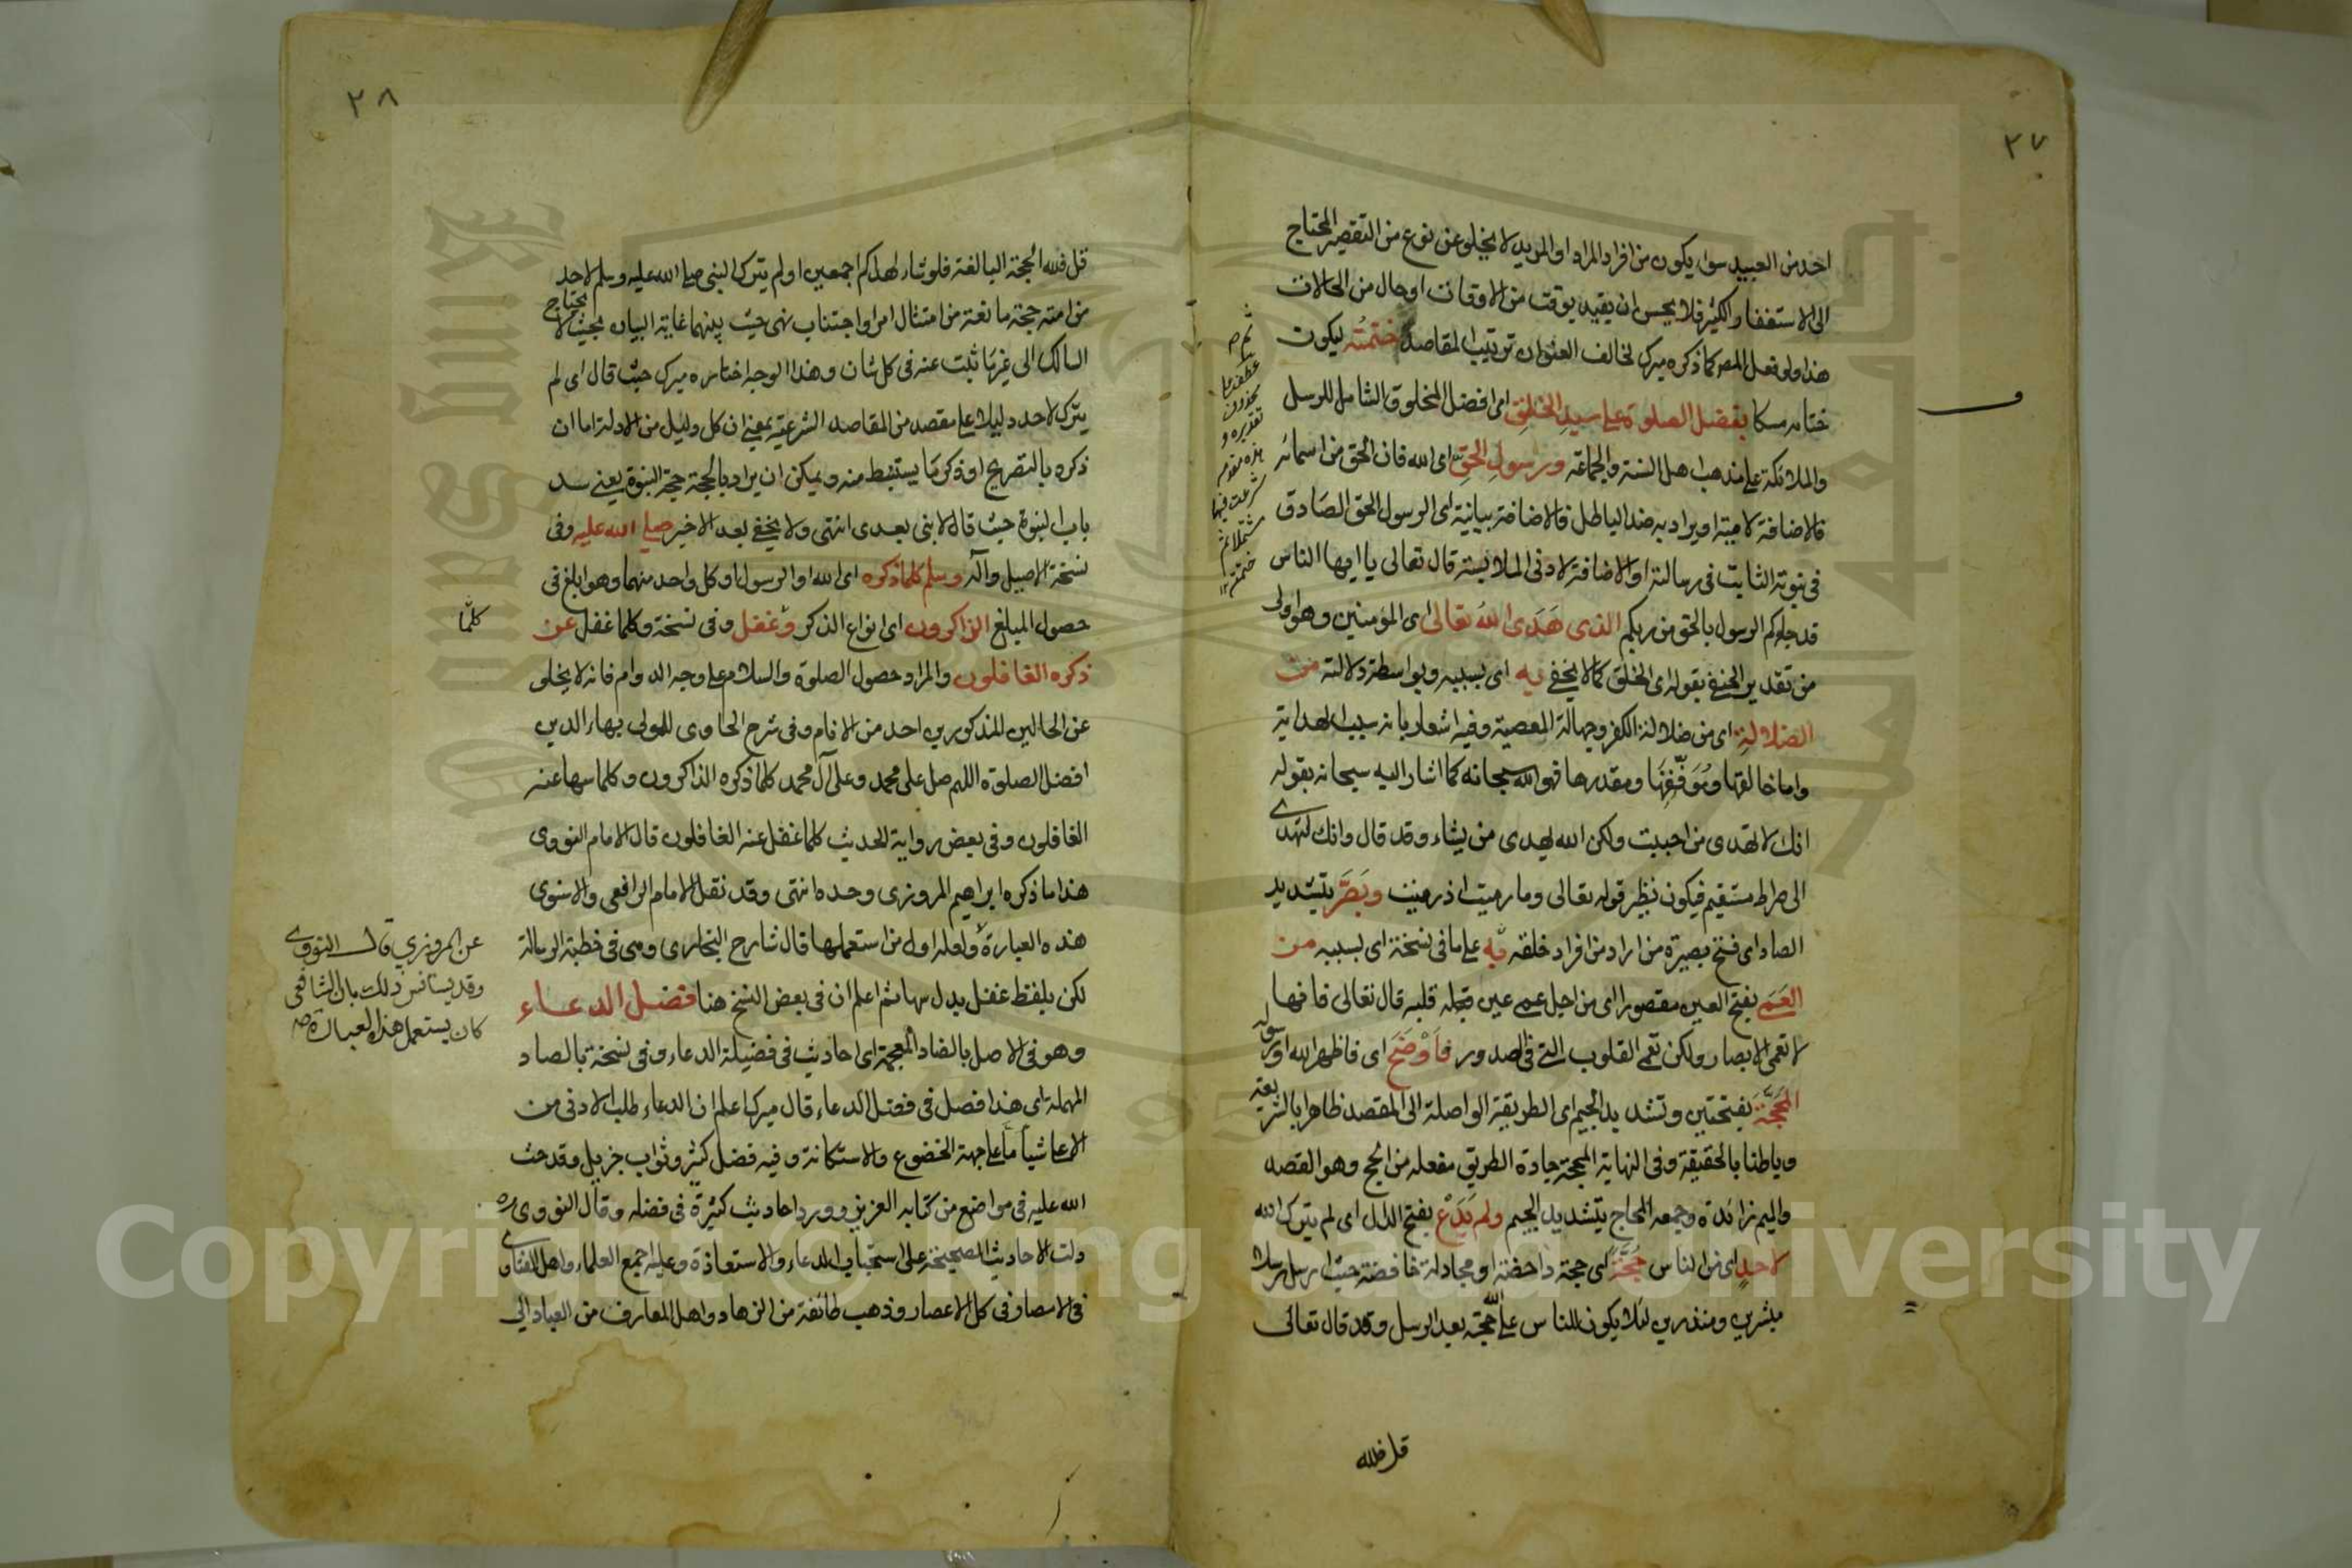 ٢٧
احد من العبيد سواء يكون من افراد المراد او المريد لا يخلو عن نوع من التقصير المحتاج
الى الاستغفار الكثير فلا يحسن ان يقيد بوقت من الاوقات او حال من الحالات
هذا ولو فعل المص كما ذكره ميرك لخالف العنوان ترتيب المقاصد ختمته ليكون
ختامه مسكا بفضل الصلوة على سيد الخلق اى افضل المخلوق الشامل للرسل
والملائكة على مذهب اهل السنة والجماعة ورسول الحق اى الله فان الحق من اسمائه
فالاضافة لامية او يراد به ضد الباطل فالاضافة بيانية اى الرسول الحق الصادق
فى نبوته الثابت فى رسالته او الاضافة لادنى الملابسة قال تعالى يا ايها الناس
قد جاءكم الرسول بالحق من ربكم الذى هدى الله تعالى اى المؤمنين وهو اولى
من تقدير الحنفى بقوله اى الخلق كما لا يخفى به اى بسببه وبواسطة دلالته من
الضلالة اى من ضلالة الكفر وجهالة المعصية وفيه اشعار بانه سبب الهداية
واما خالقها وموفقها ومقدرها فهو الله سبحانه كما اشار اليه سبحانه بقوله
انك لا تهدى من احببت ولكن الله يهدى من يشاء وقد قال وانك لتهدى
الى صراط مستقيم فيكون نظير قوله تعالى وما رميت اذ رميت وبصر بتشديد
الصاد اى فتح بصيرة من اراد من افراد خلقه به على ما فى نسخة اى بسببه من
العمى بفتح العين مقصورا اى من اجل عمى عين قلبه قال تعالى فانها
لا تعمى الابصار ولكن تعمى القلوب التى فى الصدور فاوضح اى فاظهر الله او رسوله
المحجة بفتحتين وتشديد الجيم اى الطريقة الواصلة الى المقصد ظاهرا بالشريعة
وباطنا بالحقيقة وفى النهاية المحجة جادة الطريق مفعلة من الحج وهو القصد
والميم زائدة وجمعه المحاج بتشديد الجيم ولم يدع بفتح الدال اى لم يترك الله
لاحد اى من الناس حجة اى حجة داحضة او مجادلة خافضة حيث ارسل رسلا
مبشرين ومنذرين لئلا يكون للناس على الله حجة بعد الرسل وقد قال تعالى
قل فلله
٢٨
قل فلله الحجة البالغة فلو شاء لهداكم اجمعين او لم يترك النبى صلى الله عليه وسلم لاحد
من امته حجة مانعة من امتثال امر او اجتناب نهى حيث بينهما غاية البيان بحيث لا يحتاج
السالك الى غير ما ثبت عنه فى كل شان وهذا الوجه اختاره ميرك حيث قال اى لم
يترك لاحد دليلا على مقصد من المقاصد الشرعية بمعنى ان كل دليل من الادلة اما ان
ذكره بالتصريح او ذكر ما يستنبط منه ويمكن ان يراد بالحجة حجة النبوة يعنى سد
باب النبوة حيث قال لا نبى بعدى انتهى ولا يخفى بعد الاخير صلى الله عليه وفى
نسخة الاصيل وآله وسلم كلما ذكره اى الله او الرسول او كل واحد منهما وهو ابلغ فى
حصول المبلغ الذاكرون اى انواع الذكر وغفل وفى نسخة وكلما غفل عن
ذكره الغافلون والمراد حصول الصلوة والسلام على وجه الدوام فانه لا يخلى
عن الحالين المذكورين احد من الانام وفى شرح الحاوى للمولى بهاء الدين
افضل الصلوة اللهم صل على محمد وعلى آل محمد كلما ذكره الذاكرون وكلما سها عنه
الغافلون وفى بعض رواية الحديث كلما غفل عنه الغافلون قال الامام النووى
هذا ما ذكره ابراهيم المروزى وحده انتهى وقد نقل الامام الرافعى والاسنوى
هذه العبارة ولعله اول من استعملها قال شارح البخارى وهى فى خطبة الرسالة
لكن بلفظ غفل بدل سها ثم اعلم ان فى بعض النسخ هنا فضل الدعاء
وهو فى الاصل بالضاد المعجمة اى احاديث فى فضيلة الدعاء وفى نسخة بالصاد
المهملة اى هذا فصل فى فضل الدعاء قال ميرك اعلم ان الدعاء طلب الادنى من
الاعلى شيئا ما على جهة الخضوع والاستكانة وفيه فضل كثير وثواب جزيل وقد حث
الله عليه فى مواضع من كتابه العزيز وورد احاديث كثيرة فى فضله وقال النووى ره
دلت الاحاديث الصحيحة على استحباب الدعاء والاستعاذة وعليه اجمع العلماء واهل الفتاوى
فى الامصار فى كل الاعصار وذهب طائفة من الزهاد واهل المعارف من العباد الى
كلما
عن المروزي قال النووى
وقد يستانس ذلك بان الشافعى
كان يستعمل هذه العبارة صح
Copyright © King Saud University